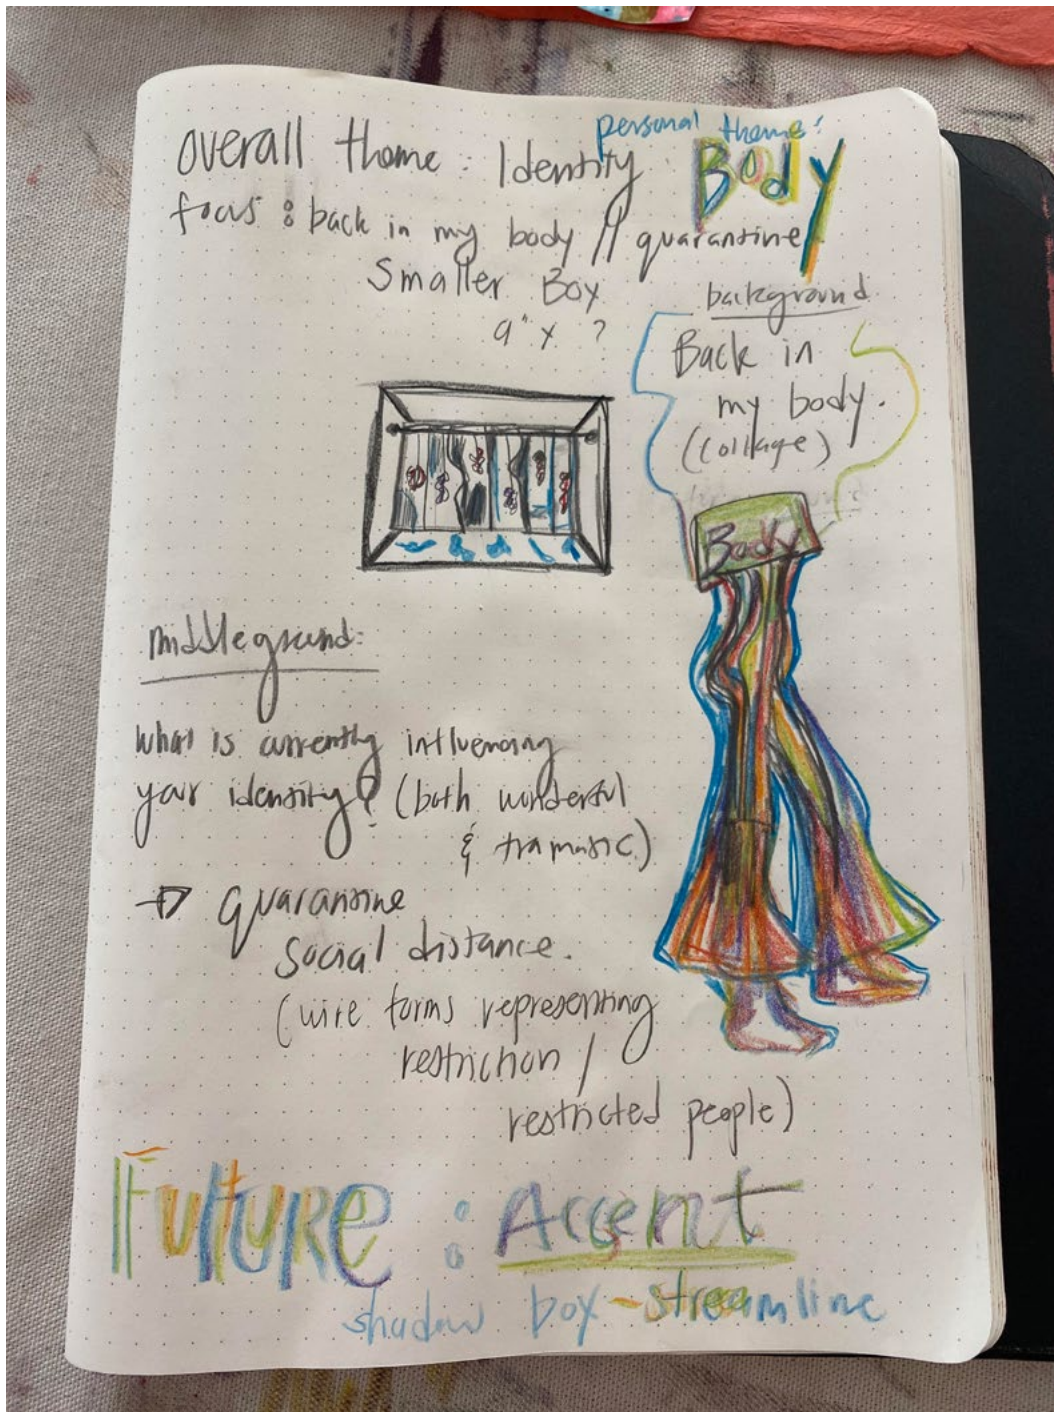 overall theme: Identity
personal theme:
Body
focus: back in my body // quarantine
Smaller Box
9" x ?
background
Back in
my body.
(collage)
Body
middleground:
What is currently influencing
your identity? (both wonderful
& tramatic)
→ quarantine
Social distance.
(wire forms representing
restriction /
restricted people)
Future: Accent
shadow box - streamline